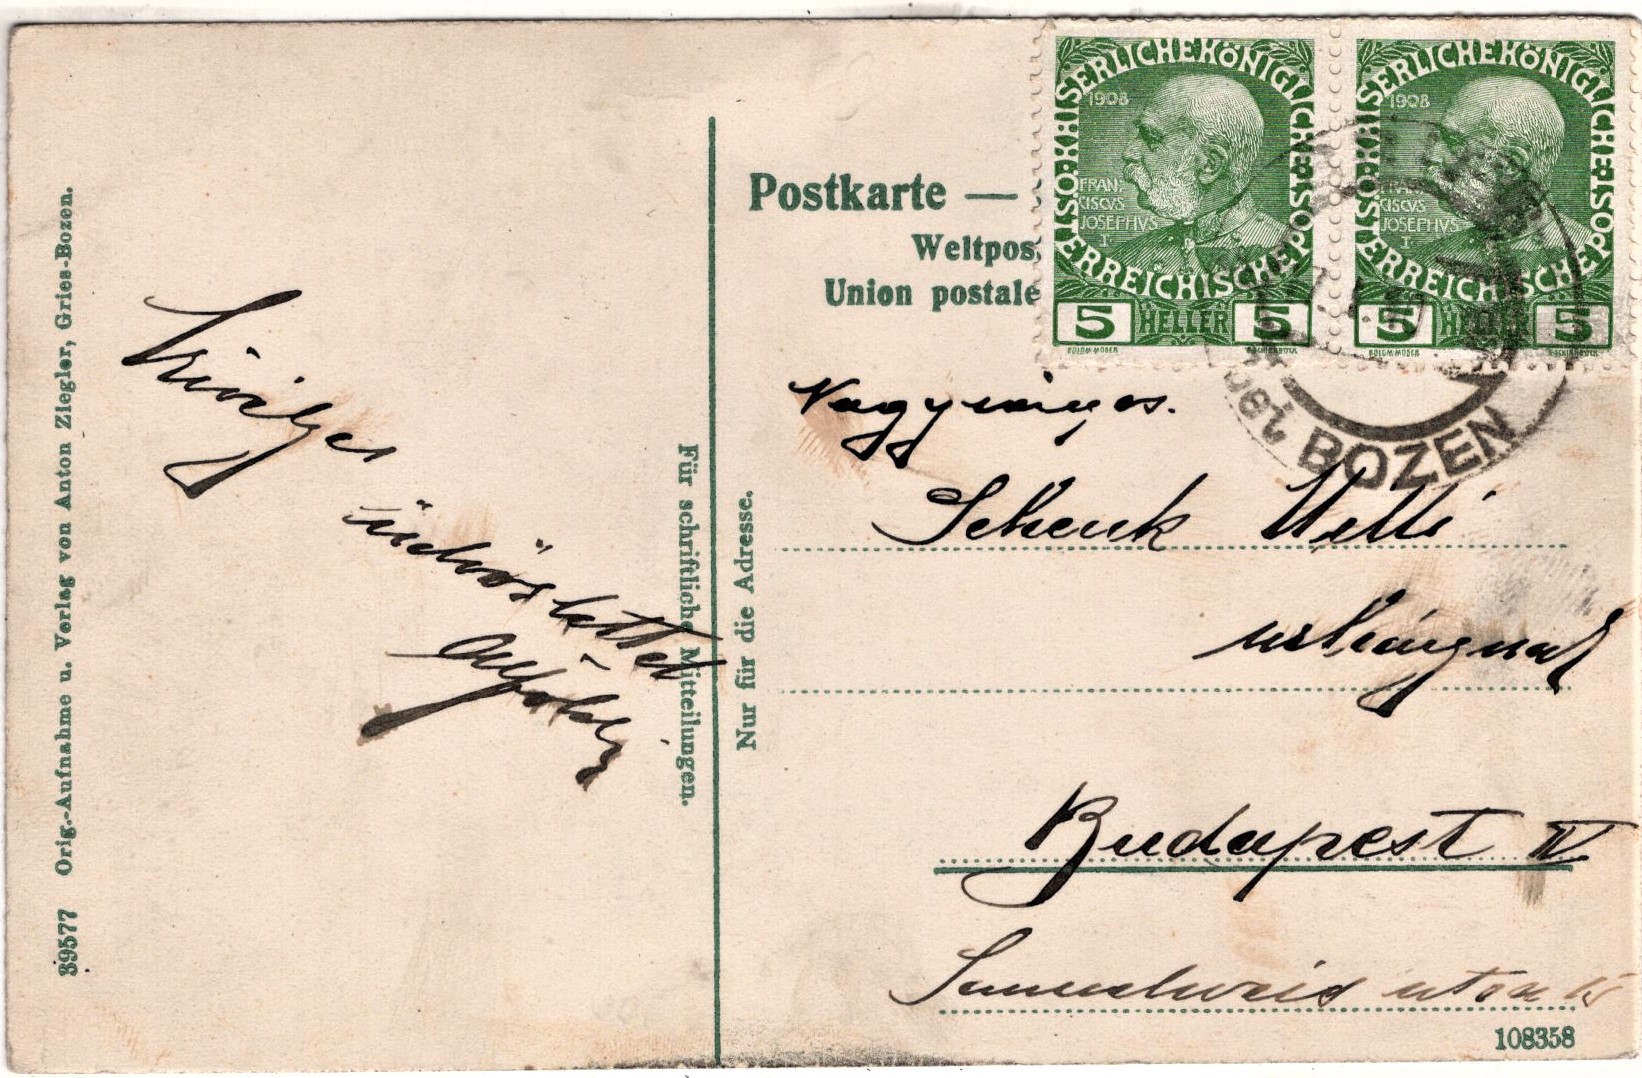 39577 Orig.-Aufnahme u. Verlag von Anton Ziegler, Gries-Bozen.
Szivélyes
üdvözlettel
Alföldy
Für schriftliche Mitteilungen.
Nur für die Adresse.
Postkarte —
Weltpos
Union postale
KAISERLICHE KÖNIGLICHE ÖSTERREICHISCHE POST
1908
FRAN:
CISCVS
JOSEPHVS
I
5 HELLER 5
KOLOM.MOSER
KAISERLICHE KÖNIGLICHE ÖSTERREICHISCHE POST
1908
CISCVS
JOSEPHVS
I
5 5
KOLOM.MOSER
bei BOZEN
Schenk
Budapest IV
utca
108358